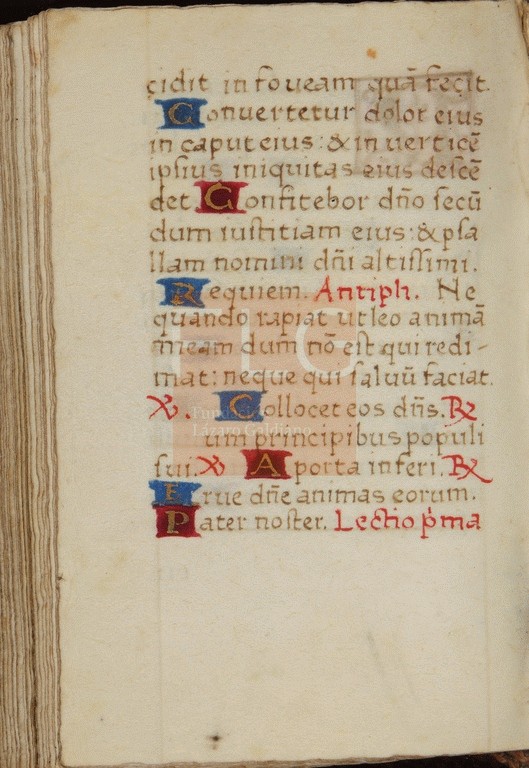 cidit in foueam quā fecit.
Conuertetur dolor eius
in caput eius: & in uerticē
ipsius iniquitas eius descē
det. Confitebor dn̄o secū
dum iustitiam eius: & psa
llam nomini dn̄i altissimi.
Requiem. Antiph. Ne
quando rapiat ut leo animā
meam dum nō est qui redi-
mat: neque qui saluū faciat.
℣. Collocet eos dn̄s. ℟
um principibus populi
sui. ℣ A porta inferi. ℟
Erue dn̄e animas eorum.
Pater noster. Lectio p̄ma
FLG
Fundación
Lázaro Galdiano